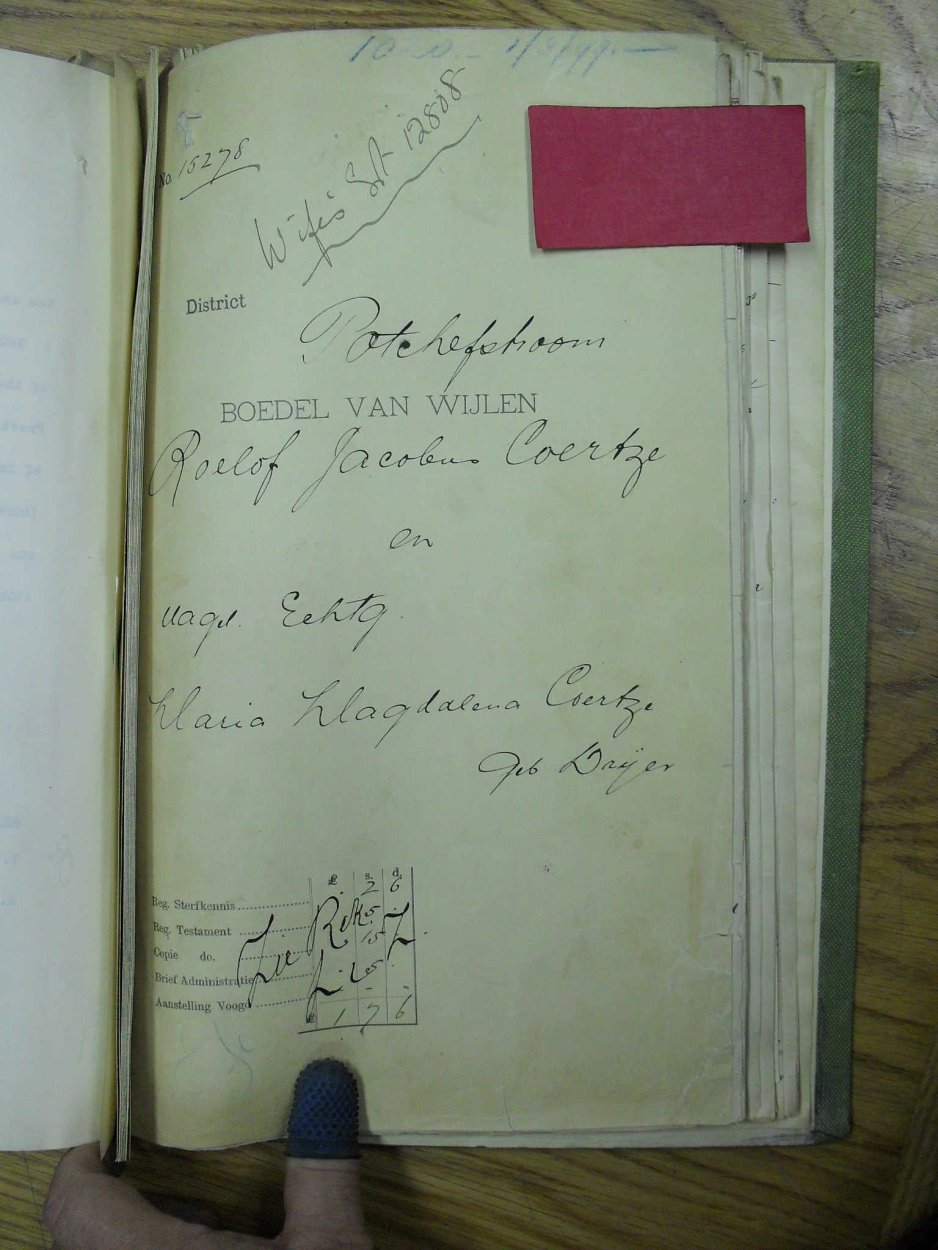 No. 15278
Wife's Est 12808
District
Potchefstroom
BOEDEL VAN WIJLEN
Roelof Jacobus Coertze
en
nagel. Echtg.
Maria Magdalena Coertze
geb Drijer
£ s. d.
Reg. Sterfkennis 2 6
Reg. Testament 5
Copie do. 15
Brief Administratie 5
Aanstelling Voogd
£ 1 7 6
Zie Rek L. Z.